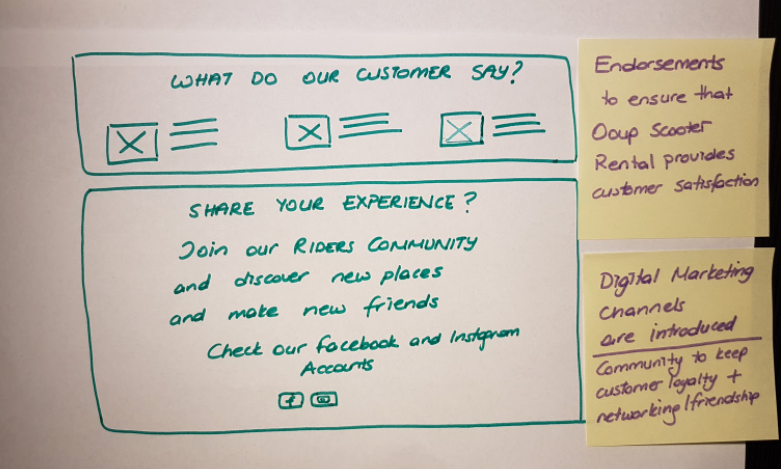 WHAT DO OUR CUSTOMER SAY?
SHARE YOUR EXPERIENCE?
Join our RIDERS COMMUNITY
and discover new places
and make new friends
Check our facebook and Instagram
Accounts
f
Endorsements
to ensure that
Ooup Scooter
Rental provides
customer satisfaction
Digital Marketing
Channels
are introduced
Community to keep
customer loyalty +
networking/friendship